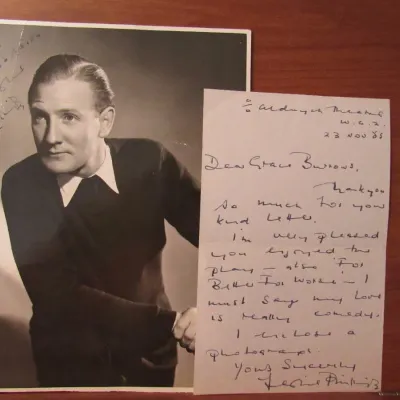 c/o Aldwych Theatre
W.C.2.
23 Nov 85
Dear Grace Burrows,
Thank you
so much for your
kind letter.
I'm very pleased
you enjoyed the
play – also For
Better For Worse – I
must say my love
is really comedy.
I enclose a
photograph.
Yours Sincerely
Leslie Phillips